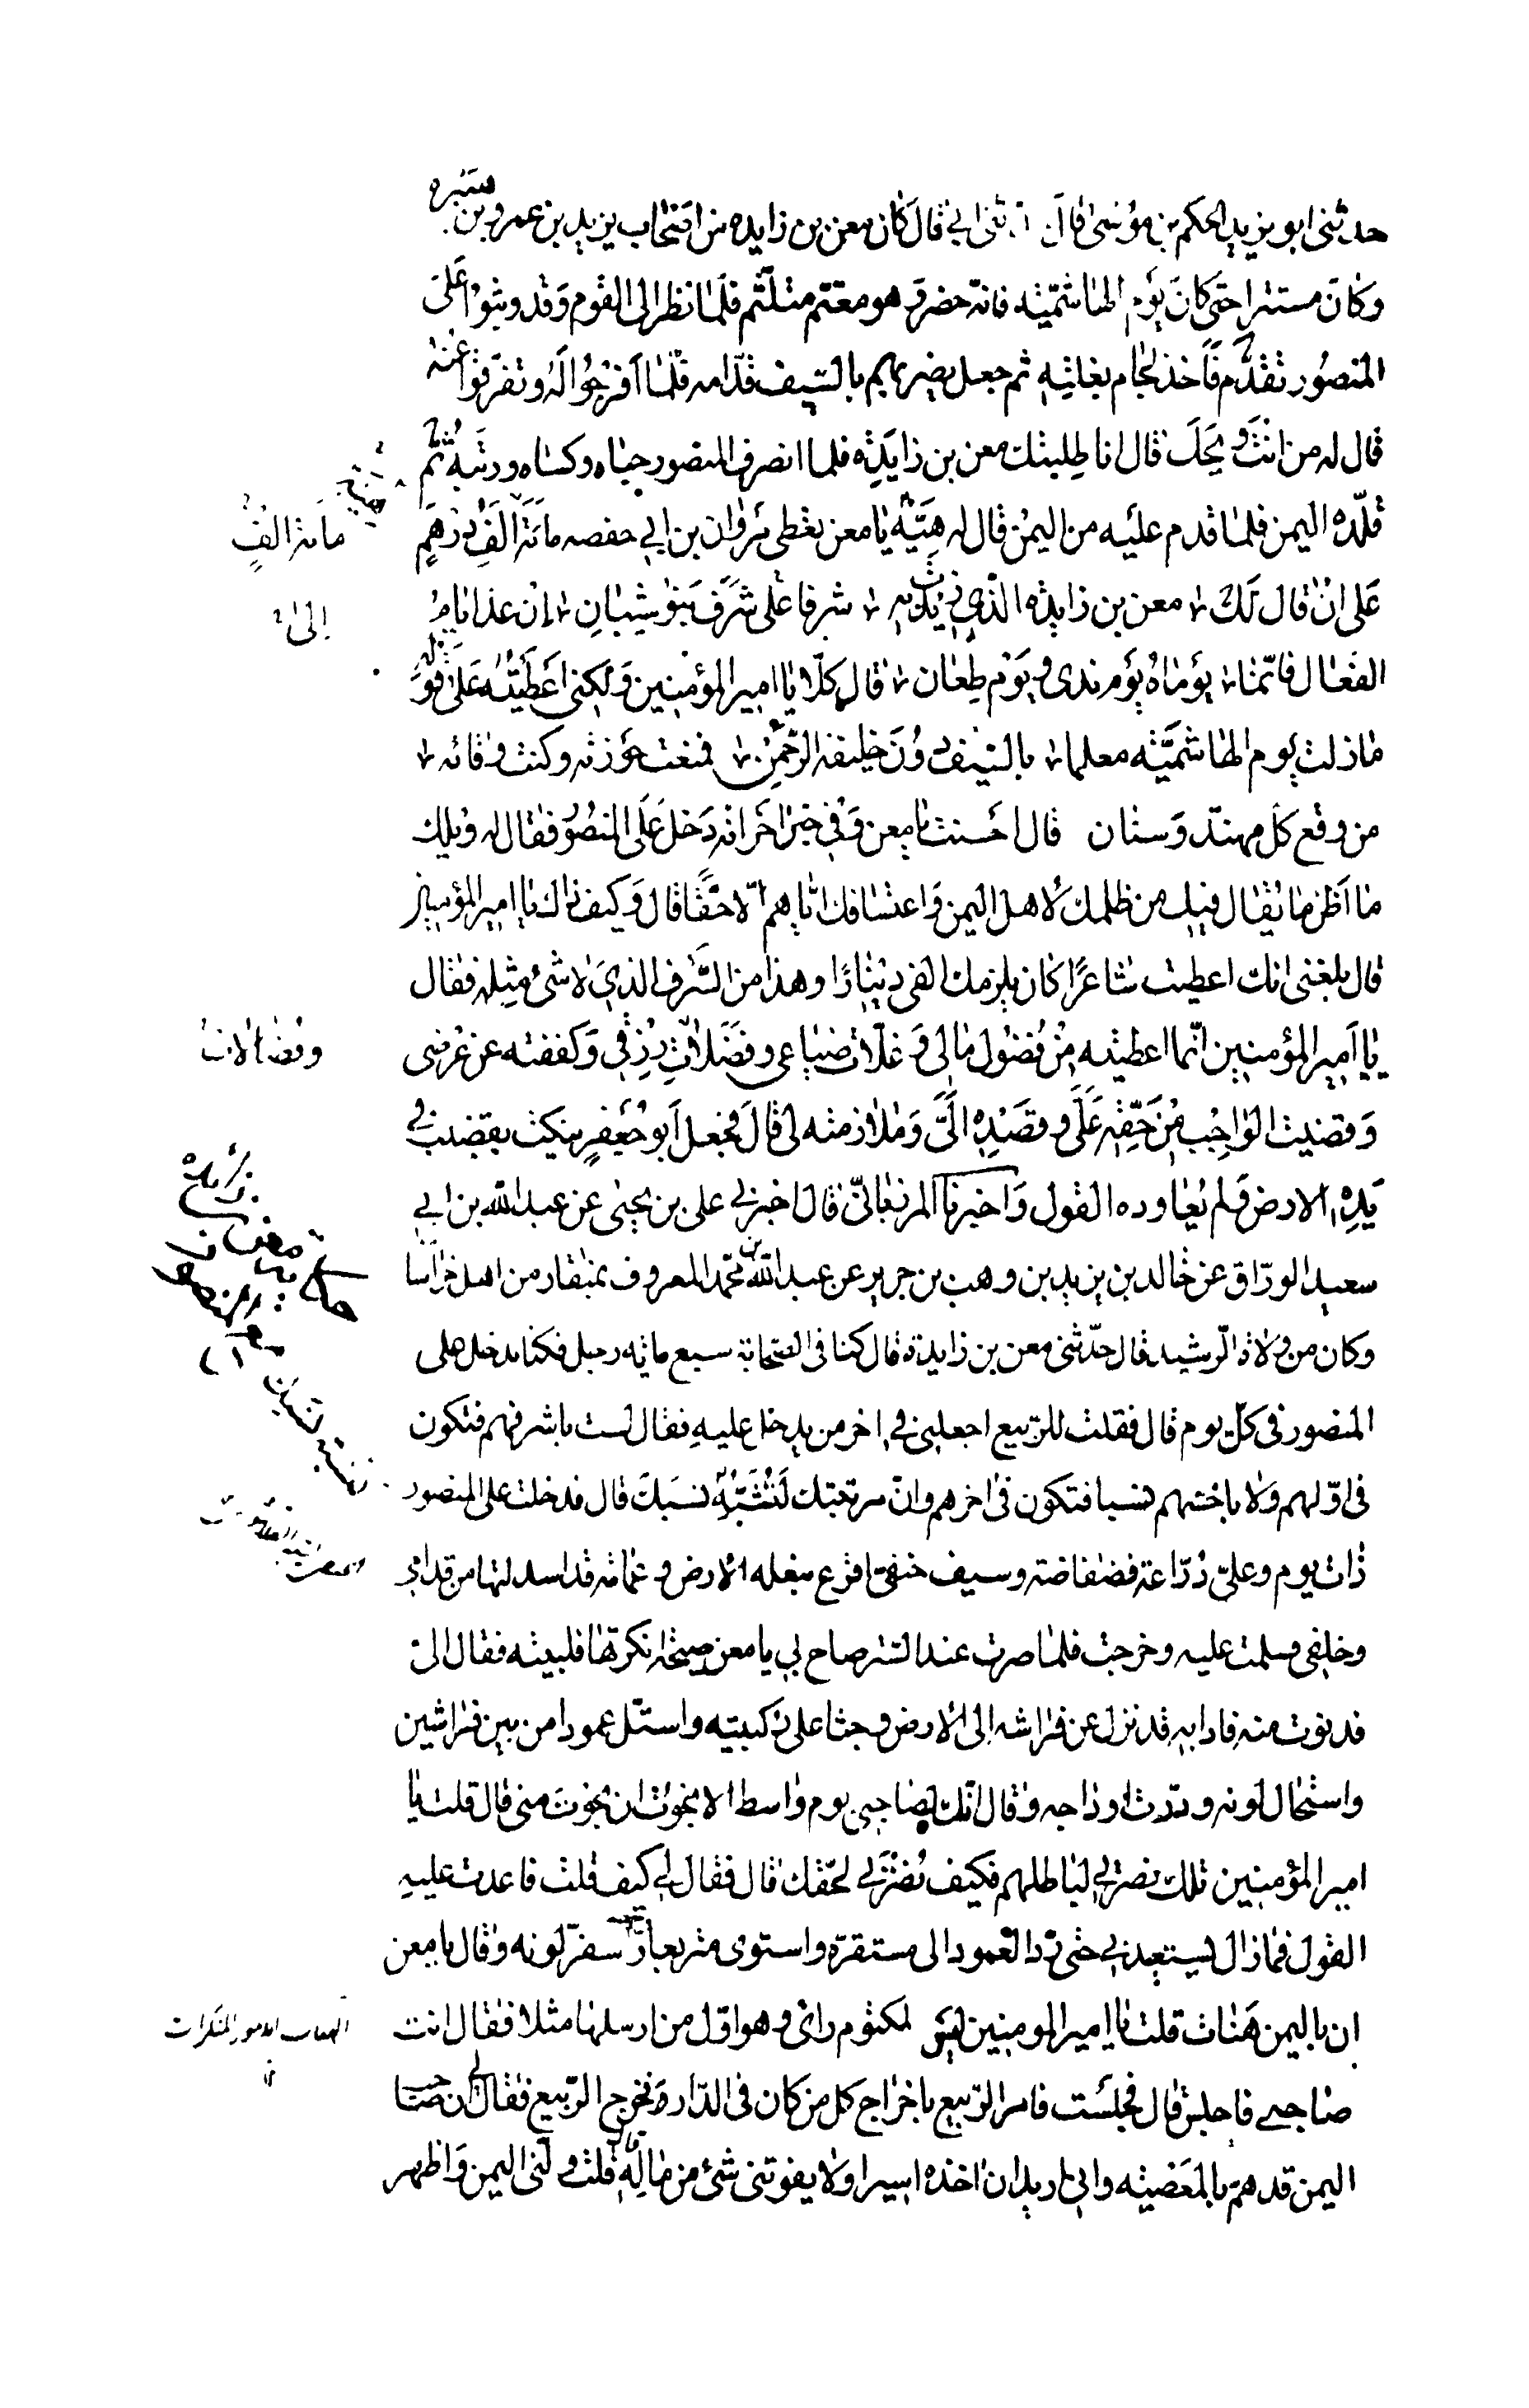 حدثنى ابو يزيد الحكم بن موسى قال حدثنى ابى قال كان معن بن زايده من اصحاب يزيد بن عمرو بن هبيره
وكان مستترا حتى كان يوم الهاشميّه فانه حضر وهو معتم متلثم فلما نظر الى القوم وقد وثبوا على
المنصور تقدّم فاخذ بلجام بغلته ثم جعل يضربهم بالسيف قدّامه فلما افرجوا له وتفرقوا عنه
قال له من انت ويحك قال انا طلبتك معن بن زايده فلما انصرف المنصور حباه وكساه ورتبه ثم
قلّده اليمن فلما قدم عليه من اليمن قال له هيه يا معن تعطى مروان بن ابى حفصه مائة الف درهم
مائة الف
على ان قال لك معن بن زايده الذى زيدت به شرفا على شرف بنو شيبان ان عد ايام
الى
الفعال فانما يوماه يوم ندى ويوم طعان قال كلا يا امير المؤمنين ولكنى اعطيته على قوله
ما زلت يوم الهاشميّه معلما بالسيف دون خليفه الرحمن فمنعت حوزته وكنت وقائه
من وقع كل مهند وسنان قال احسنت يا معن وفى خبر اخر انه دخل على المنصور فقال له ويلك
ما اظن ما يقال فيك من ظلمك لاهل اليمن واعتسافك اياهم الا حقا قال وكيف ذاك يا امير المؤمنين
قال بلغنى انك اعطيت شاعرا كان يلزمك الفى دينارا وهذا من السرف الذى لا شئ مثله فقال
يا امير المؤمنين انما اعطيته من فضول مالى وغلات ضياعى وفضلات رزقى وكففته عن عرضى
وفضالات
وقضيت الواجب من حقه على وقصده الىّ وملازمته لى قال فجعل ابو جعفر ينكت بقضيب فى
يده الارض ولم يعاوده القول واخبرنا المرزبانىّ قال اخبرنى على بن يحيى عن عبد الله بن ابى
سعيد الورّاق عن خالد بن يزيد بن وهب بن جرير عن عبد الله بن محمد المعروف بمنقار من اهل خراسان
وكان من ولاة الرشيد قال حدّثنى معن بن زايدة قال كنا فى الصحابة سبع مائه رجل فكنا ندخل على
المنصور فى كل يوم قال فقلت للربيع اجعلنى فى اخر من يدخل عليه فقال لست باشرفهم فتكون
فى اوّلهم ولا باخسهم نسبا فتكون فى اخرهم وان مرتبتك لتشبه نسبك قال فدخلت على المنصور
ذات يوم وعلىّ درّاعة فضفاضة وسيف حنفى اقرع بنعله الارض وعمامة قد اسدلتها من قدامى
وخلفى فسلمت عليه وخرجت فلما صرت عند الستر صاح بى يا معن صيحة انكرتها فلبيته فقال الىّ
فدنوت منه فاذا به قد نزل عن فراشه الى الارض وجثا على ركبتيه واستل عمودا من بين فراشين
واستحال لونه ودرّت اوداجه وقال انك لصاحبى يوم واسط لا نجوت ان نجوت منى قال قلت يا
امير المؤمنين تلك نصرتى لباطلهم فكيف نصرتى لحقك قال فقال لى كيف قلت فاعدت عليه
القول فما زال يستعيدنى حتى ردّ العمود الى مستقره واستوى متربعا وسفر لونه وقال يا معن
ان باليمن هنات قلت يا امير المومنين ليس لمكتوم راى وهو اول من ارسلها مثلا فقال انت
الهنات الامور المنكرات
صاحبى فاجلس قال فجلست فامر الربيع باخراج كل من كان فى الدار وخرج الربيع فقال لى ان صاحب
اليمن قد همّ بالمعصيه وانى اريد ان اخذه اسيرا ولا يفوتنى شئ من ماله قلت ولّنى اليمن واظهر